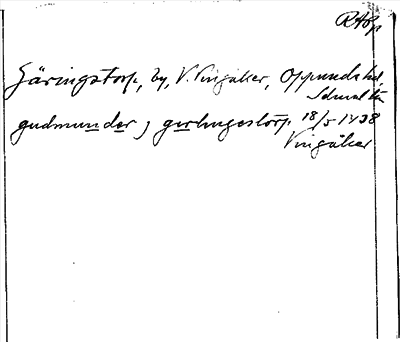 RAp
Säringstorp, by, V. Vingåker, Oppunda hd,
Södermanl. län
gudmunder j gerlingestorp 18/5 1438
Vingåker